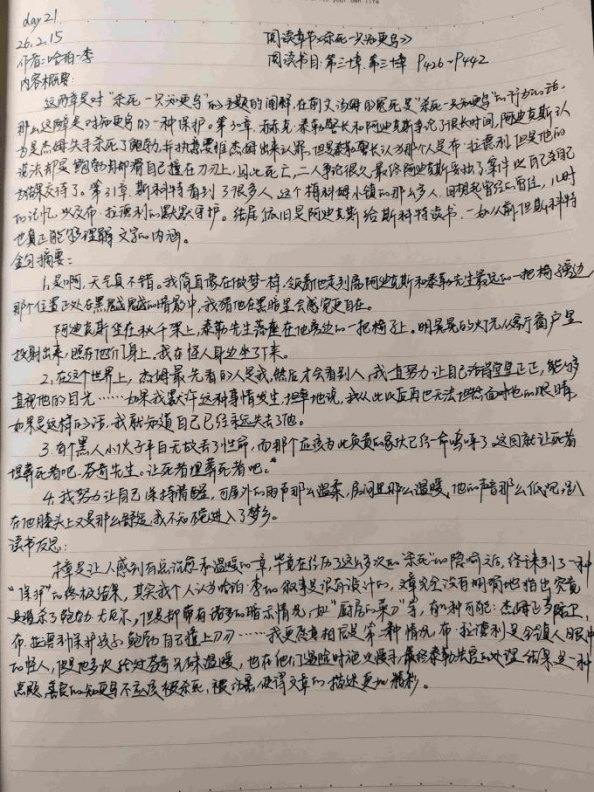 day 21
26.2.15
阅读章节《杀死一只知更鸟》
作者:哈珀·李
阅读书目:第三十章、第三十章 P426-P442
内容概要:
这两章是对"杀死一只知更鸟"的主题的阐释,在前文汤姆的冤死是"杀死一只知更鸟"的行为的话,
那么这两章是对知更鸟的一种保护。第30章,赫克·泰勒警长和阿迪克斯争论了很长时间,阿迪克斯认
为是杰姆失手杀死了鲍勃,并执意要推杰姆出来认罪,但是泰勒警长认为那个人是布·拉德利,但是他的
说法却是鲍勃·尤厄尔自己撞在刀刃上,因此死亡,二人争论很久,最终阿迪克斯妥协了,案件以自己杀自己
为结果交待了。第31章,斯科特看到了很多人,这个梅科姆小镇的那么多人,回想起曾经的居住,儿时
的记忆,以及布·拉德利的默默守护。结尾依旧是阿迪克斯给斯科特读书,一如从前,但斯科特
也真正能够理解文字的内涵。
金句摘要:
1.是啊,天气真不错。我简直像在做梦一样,领着他走到离阿迪克斯和泰勒先生最远的一把椅子旁边,
那个位置正处在黑黢黢的暗影中,我猜他在黑暗里会感觉更自在。
阿迪克斯坐在秋千架上,泰勒先生落座在他旁边的一把椅子上。明晃晃的灯光从客厅窗户里
投射出来,照在他们身上。我在怪人身边坐了下来。
2.在这个世界上,杰姆最先看的人是我,然后才会看别人,我一直努力让自己活得堂堂正正,能够
直视他的目光……如果我默许这种事情发生,坦率地说,我从此以后再也无法坦然面对他的眼睛,
如果是这样的话,我就知道自己已经永远失去了他。
3.有个黑人小伙子平白无故丢了性命,而那个应该为此负责的家伙已经一命呜呼了。这回就让死者
埋葬死者吧,芬奇先生。让死者埋葬死者吧。
4.我努力让自己保持清醒,可屋外的雨声那么温柔,房间里那么温暖,他的声音那么低沉,趴
在他膝头上又是那么舒适,我不知不觉进入了梦乡。
读书反思:
本章是让人感到有些沉重和温暖的一章,毕竟在经历了这么多次的"杀死"的隐喻之后,终读到了一种
"保护"的终极结果,其实我个人认为哈珀·李的叙事是很有设计的,文章完全没有明确地指出究竟
是谁杀了鲍勃·尤厄尔,但是却带有诸多的暗示情况,如"厨房的菜刀"等,有几种可能:杰姆正当防卫,
布·拉德利保护孩子,鲍勃自己撞上刀刃……我更倾向相信是第二种情况,布·拉德利是令镇人眼中
的怪人,但是他多次给过芬奇兄妹温暖,也在他们遇险时施以援手,最终泰勒警官的处理结果是一种
点题,善良的知更鸟不应该被杀死,被伤害,使得文章的描述更加精彩。